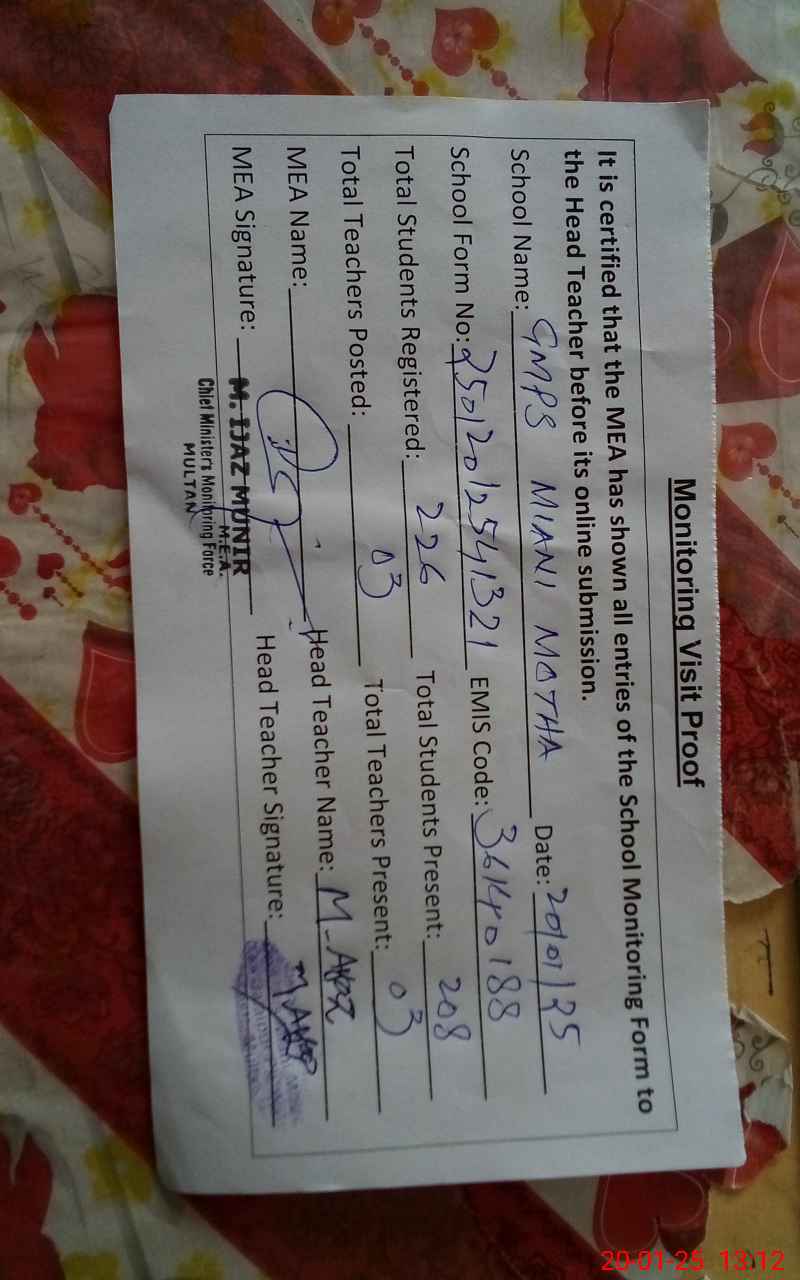 Monitoring Visit Proof
It is certified that the MEA has shown all entries of the School Monitoring Form to
the Head Teacher before its online submission.
School Name: GMPS MIANI MOTHA Date: 20/01/25
School Form No: 25012012541321 EMIS Code: 36140188
Total Students Registered: 226 Total Students Present: 208
Total Teachers Posted: 03 Total Teachers Present: 03
MEA Name: Head Teacher Name: M-
MEA Signature: Head Teacher Signature:
M. IJAZ MUNIR
M.E.A.
Chief Minister's Monitoring Force
MULTAN
20-01-25 13:12